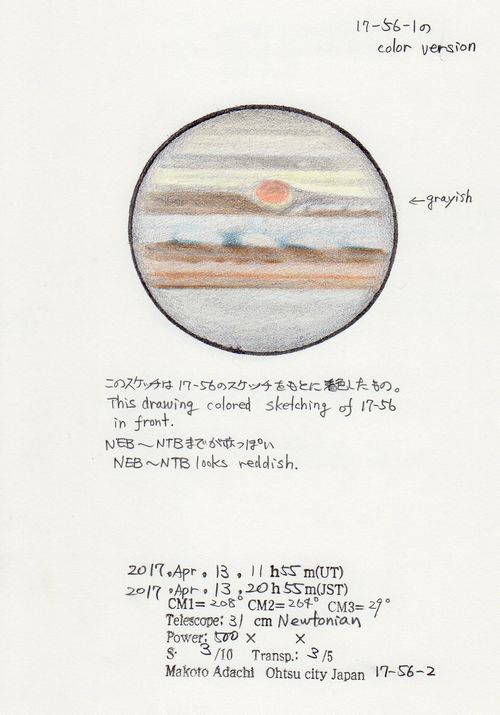 17-56-1の
color version
← grayish
このスケッチは17-56のスケッチをもとに着色したもの。
This drawing colored sketching of 17-56
in front.
NEB～NTBまでが赤っぽい
NEB～NTB looks reddish.
2017.Apr. 13. 11 h55 m(UT)
2017.Apr. 13. 20 h55 m(JST)
CM1= 208° CM2= 264° CM3= 29°
Telescope: 31 cm Newtonian
Power: 500 × ×
S. 3/10 Transp.: 3/5
Makoto Adachi Ohtsu city Japan 17-56-2